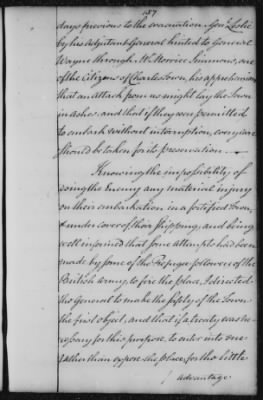 187
days previous to the evacuation Gen.l Leslie
by his Adjutant General hinted to General
Wayne through Mr. Morrice Simmons, one
of the Citizens of Charles Town, his apprehensions
that an attack from us might lay the Town
in ashes: and that if they were permitted
to embark without interruption, every care
should be taken for its preservation.
Knowing the impossibility of
doing the Enemy any material injury
on their embarkation in a fortified Town,
& under cover of their shipping, and being
well informed that some attempts had been
made by some of the Refugee followers of the
British army, to fire the place, I directed
the General to make the safety of the Town
the first object, and that if a treaty was ne-
cessary for this purpose, to enter into one
rather than expose the place, for the little
advantage